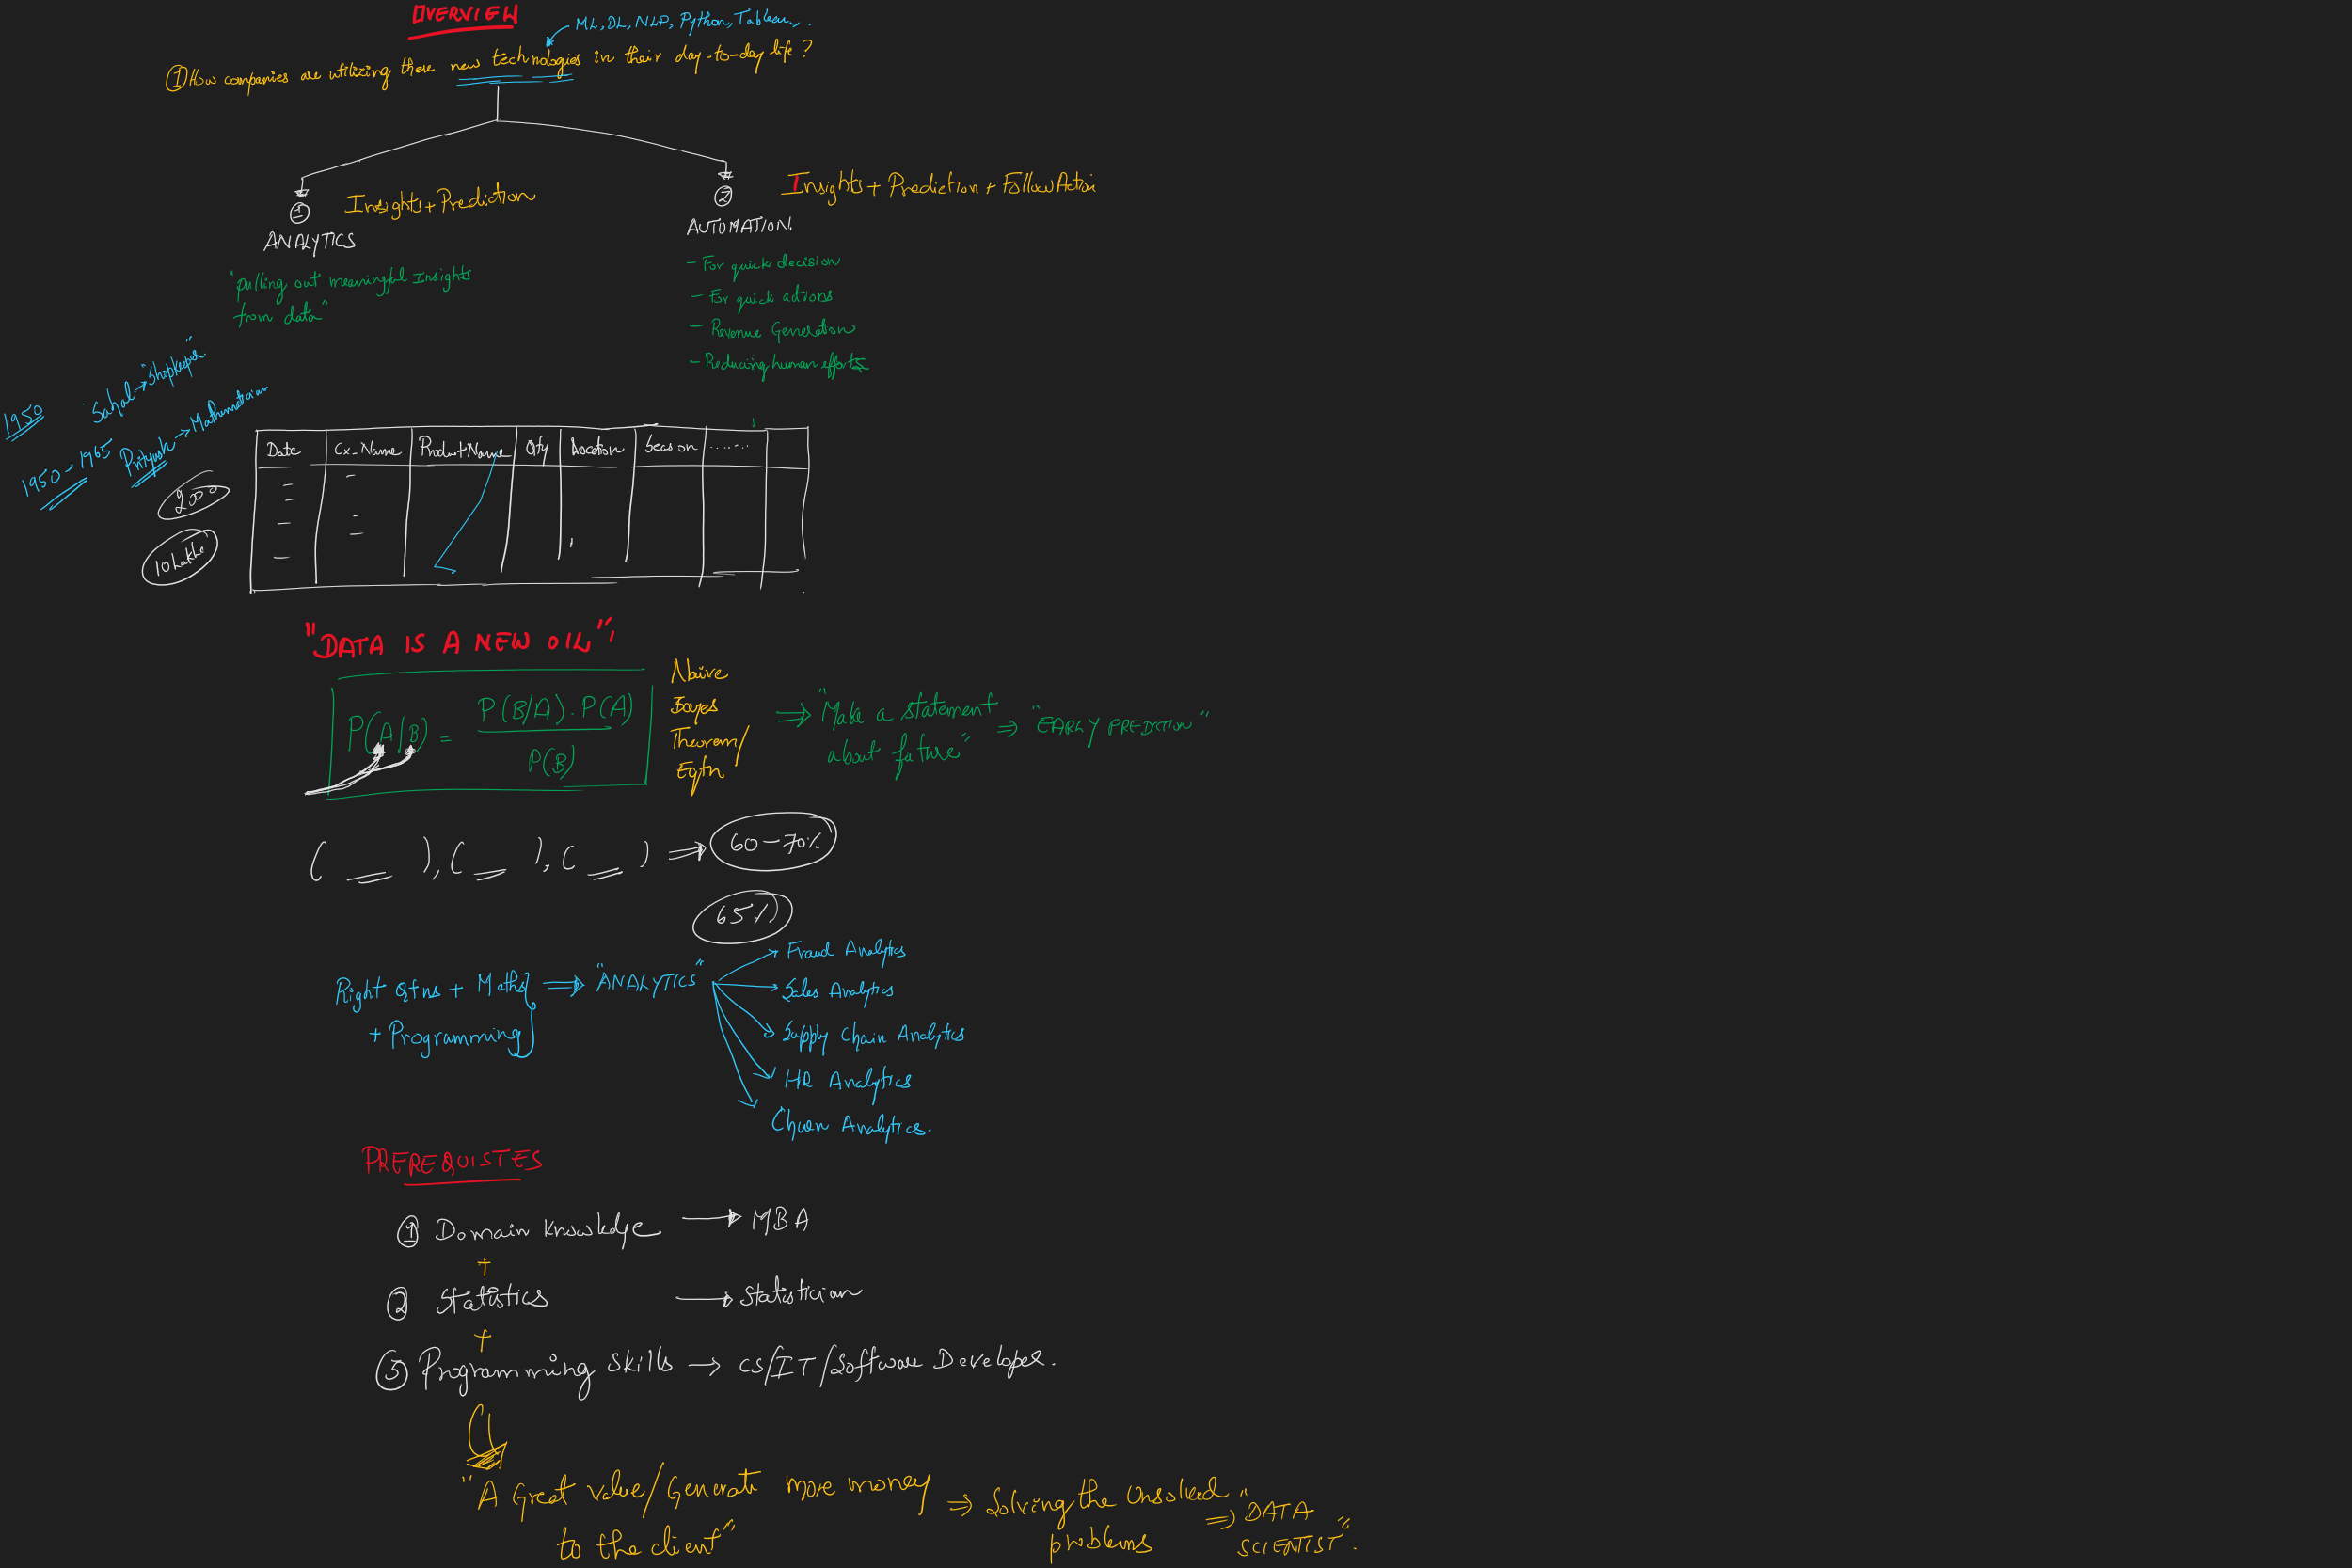 OVERVIEW
ML, DL, NLP, Python, Tableau.
① How companies are utilizing these new technologies in their day-to-day life?
①
Insights + Prediction
ANALYTICS
"pulling out meaningful Insights
from data"
②
Insights + Prediction + Follow Action
AUTOMATION
- For quick decision
- For quick actions
- Revenue Generation
- Reducing human efforts
1950 Sahal → "Shopkeeper"
1950-1965 Prityush → Mathematician
2000
10 Lakhs
Date Cx_Name Product Name Qty Location Season ......
"DATA IS A NEW OIL"
P(A/B) = P(B/A) . P(A)
P(B)
Naive
Bayes
Theorem/
Eqtn
⇒ "Make a statement
about future" ⇒ "EARLY PREDICTION"
( __ ), ( __ ), ( __ ) ⇒ 60-70%
65%
Right Qtns + Maths
+ Programming
⇒ "ANALYTICS"
Fraud Analytics
Sales Analytics
Supply Chain Analytics
HR Analytics
Churn Analytics.
PREREQUISTES
① Domain Knowledge → MBA
+
② Statistics → Statistician
+
③ Programming Skills → CS/IT/Software Developer.
"A Great value/Generate more money
to the client"
⇒ Solving the Unsolved
problems
⇒ "DATA
SCIENTIST".